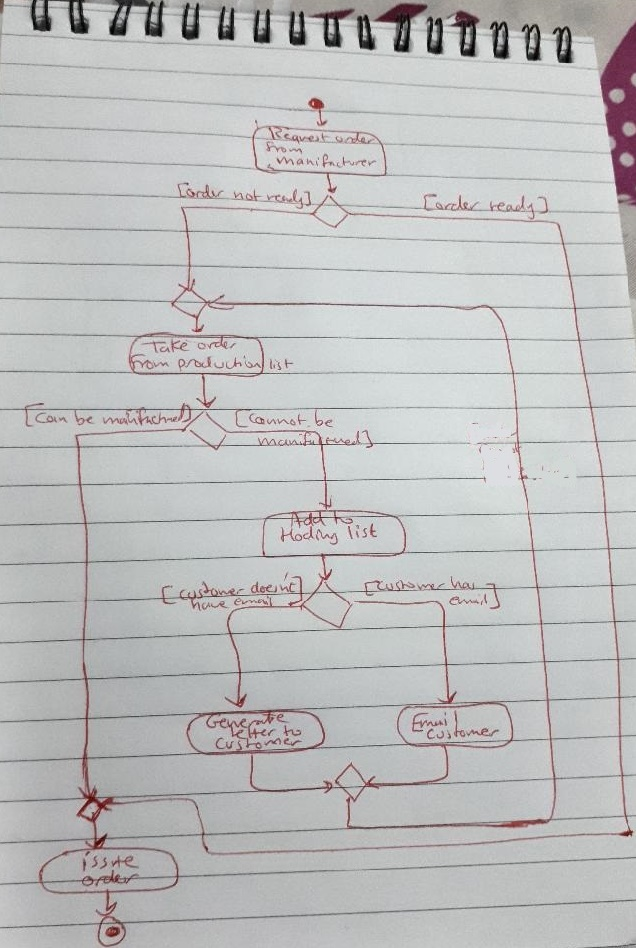 Request order
from
manifacturer
[order not ready]
[order ready]
Take order
from production list
[Can be manifactured]
[Cannot be
manifactured]
Add to
Hoding list
[customer doesn't
have email
[customer has
email]
Generate
letter to
customer
Email
customer
issue
order